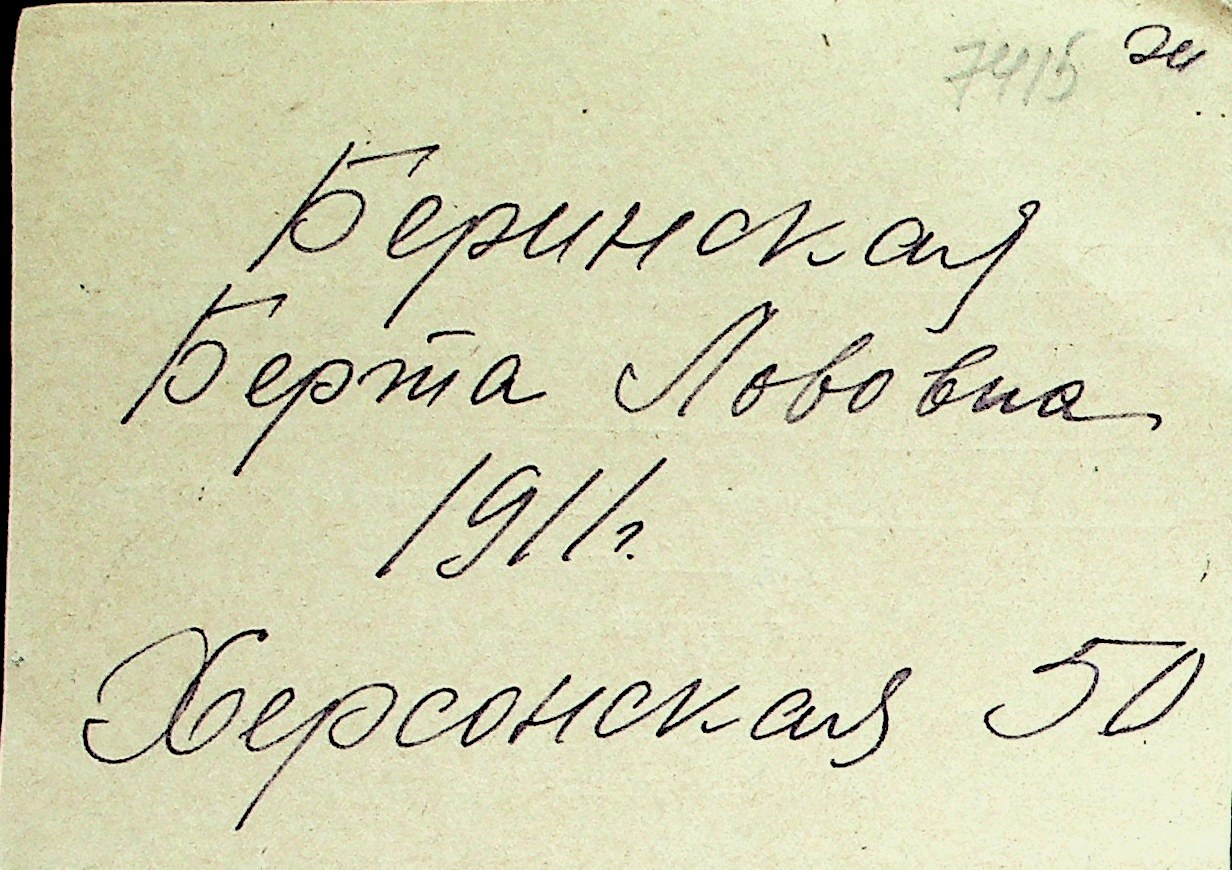 7415
Беринская
Берта Лововна
1911г.
Херсонская 50